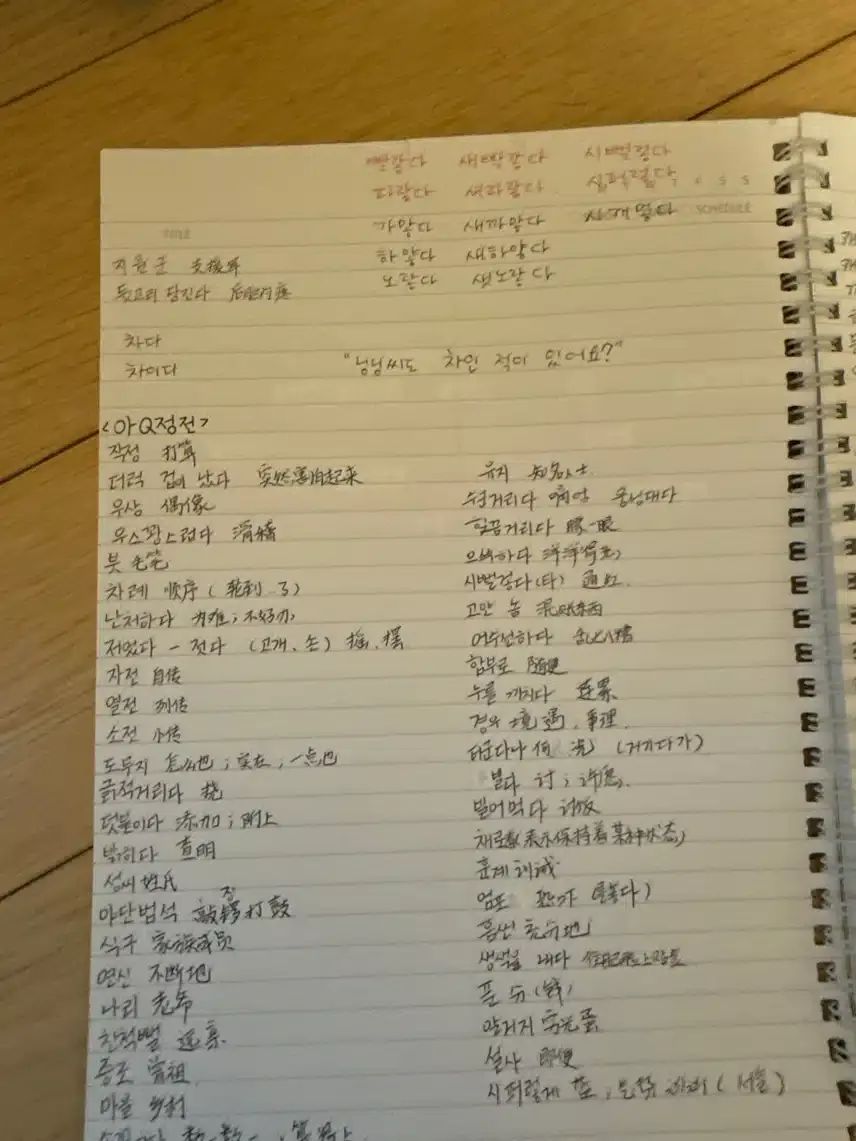 빨갛다 새빨갛다 시뻘겋다
파랗다 새파랗다 시퍼렇다
가맣다 새까맣다 시꺼멓다 SCHEDULE
하얗다 새하얗다
노랗다 샛노랗다
TITLE
지원군 支援军
뒷고리 당긴다
차다
차이다 "닝닝씨도 차인 적이 있어요?"
<아Q정전>
작정 打算
더럭 겁이 났다 突然害怕起来
우상 偶像
우스꽝스럽다 滑稽
붓 毛笔
차례 顺序 (轮到..了)
난처하다 为难; 不好办
저었다 - 젓다 (고개, 손) 摇, 摆
자전 自传
열전 列传
소전 小传
도무지 怎么也; 实在; 一点也
긁적거리다 挠
덧붙이다 添加; 附上
밝히다 查明
성씨 姓氏
야단법석 敲锣打鼓
식구 家族成员
연신 不断地
나리 老爷
친척뻘 远亲
증조 曾祖
마을 乡村
유지 知名人士
수군거리다 웅성대다
힐끔거리다 瞟一眼
으쓱하다 洋洋得意
시뻘겋다(타) 通红
고얀 놈 混账东西
어수선하다
함부로 随便
누를 끼치다 连累
경우 境遇, 事理
더군다나 何况 (거기다가)
빌다 讨; 许愿
빌어먹다 讨饭
채로 表示保持着某种状态
훈계 训诫
엄포 恐吓
흠씬 充分地
생색을 내다
푼 分(钱)
알거지 穷光蛋
설사 即使
시퍼렇게